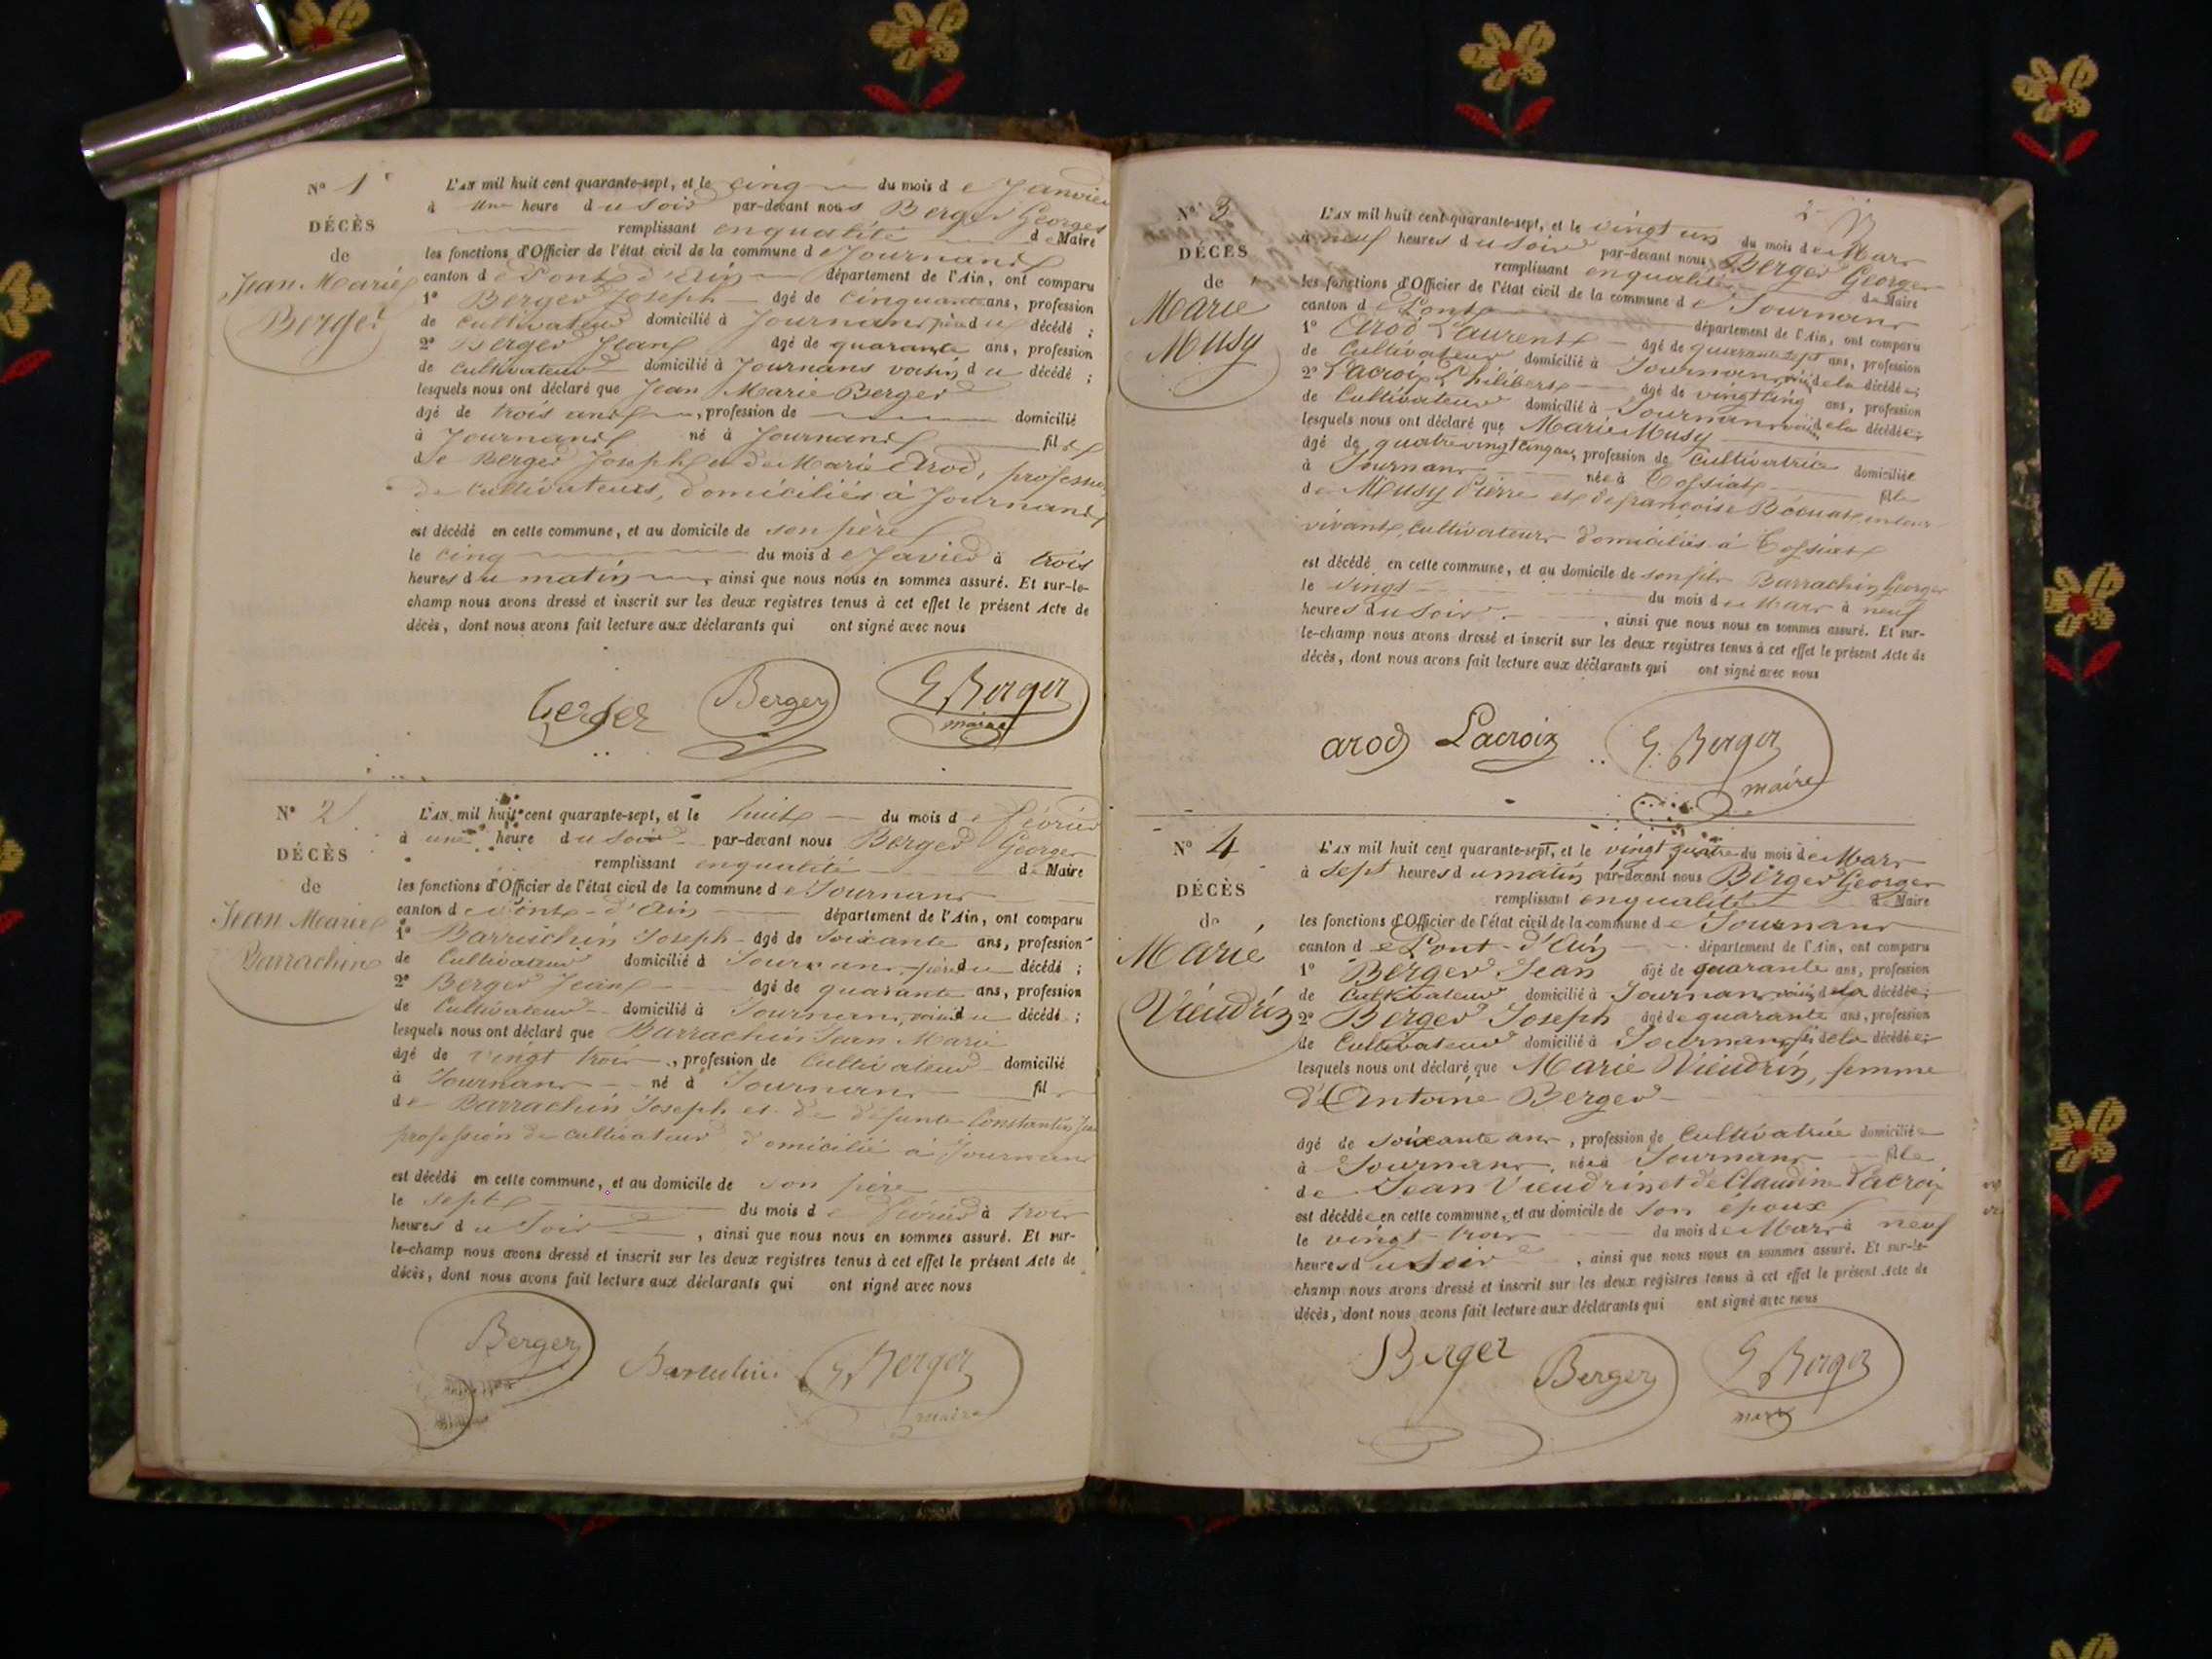 N° 1er
DÉCÈS
de
Jean Marie
Berger
L'AN mil huit cent quarante-sept, et le cinq du mois de Janvier
à une heure du soir par-devant nous Berger Georges
remplissant en qualité de Maire
les fonctions d'Officier de l'état civil de la commune de Journans
canton de Pont d'Ain département de l'Ain, ont comparu
1° Berger Joseph âgé de cinquante ans, profession
de cultivateur domicilié à Journans père du décédé ;
2° Berger Jean âgé de quarante ans, profession
de cultivateur domicilié à Journans voisin du décédé ;
lesquels nous ont déclaré que Jean Marie Berger
âgé de trois ans, profession de domicilié
à Journans né à Journans fils
de Berger Joseph et de Marie Arod, profession
de cultivateurs, domiciliés à Journans
est décédé en cette commune, et au domicile de son père
le cinq du mois de Javier à trois
heures du matin, ainsi que nous nous en sommes assuré. Et sur-le-
champ nous avons dressé et inscrit sur les deux registres tenus à cet effet le présent Acte de
décès, dont nous avons fait lecture aux déclarants qui ont signé avec nous
berger Berger G Berger
maire
N° 2
DÉCÈS
de
Jean Marie
Barrachin
L'AN mil huit cent quarante-sept, et le huit du mois de Février
à une heure du soir par-devant nous Berger Georges
remplissant en qualité de Maire
les fonctions d'Officier de l'état civil de la commune de Journans
canton de Pont-d'Ain département de l'Ain, ont comparu
1° Barrachin Joseph âgé de soixante ans, profession
de Cultivateur domicilié à Journans père du décédé ;
2° Berger Jean âgé de quarante ans, profession
de Cultivateur domicilié à Journans, voisin du décédé ;
lesquels nous ont déclaré que Barrachin Jean Marie
âgé de vingt trois, profession de Cultivateur domicilié
à Journans né à Journans fils
de Barrachin Joseph et de défunte Constantin
profession de cultivateur domicilié à Journans
est décédé en cette commune, et au domicile de son père
le sept du mois de Février à trois
heures du Soir, ainsi que nous nous en sommes assuré. Et sur-
le-champ nous avons dressé et inscrit sur les deux registres tenus à cet effet le présent Acte de
décès, dont nous avons fait lecture aux déclarants qui ont signé avec nous
Berger Barrachin G Berger
maire
2
N° 3
DÉCÈS
de
Marie
Musy
L'AN mil huit cent quarante-sept, et le vingt un du mois de Mars
à neuf heures du soir par-devant nous Berger Georges
remplissant en qualité de Maire
les fonctions d'Officier de l'état civil de la commune de Journans
canton de Pont département de l'Ain, ont comparu
1° Arod Laurent âgé de quarante sept ans, profession
de Cultivateur domicilié à Journans voisin de la décédée ;
2° Lacroix Philibert âgé de vingt cinq ans, profession
de Cultivateur domicilié à Journans voisin de la décédée ;
lesquels nous ont déclaré que Marie Musy
âgé de quatre vingt cinq ans, profession de cultivatrice domiciliée
à Journans née à Tossiat fille
de Musy Pierre et de françoise en leur
vivant Cultivateurs domiciliés à Tossiat
est décédé en cette commune, et au domicile de son fils Barrachin Georges
le vingt du mois de Mars à neuf
heures du soir, ainsi que nous nous en sommes assuré. Et sur-
le-champ nous avons dressé et inscrit sur les deux registres tenus à cet effet le présent Acte de
décès, dont nous avons fait lecture aux déclarants qui ont signé avec nous
arod Lacroix G. Berger
maire
N° 4
DÉCÈS
de
Marie
Vieudrin
L'AN mil huit cent quarante-sept, et le vingt quatre du mois de Mars
à Sept heures du matin par-devant nous Berger Georges
remplissant en qualité de Maire
les fonctions d'Officier de l'état civil de la commune de Journans
canton de Pont-d'Ain département de l'Ain, ont comparu
1° Berger Jean âgé de quarante ans, profession
de Cultivateur domicilié à Journans voisin de la décédée ;
2° Berger Joseph âgé de quarante ans, profession
de Cultivateur domicilié à Journans fils de la décédée ;
lesquels nous ont déclaré que Marie Vieudrin, femme
d'Antoine Berger
âgé de soixante ans, profession de Cultivatrice domiciliée
à Journans, née à Journans fille
de Jean Vieudrin et de Claudine Lacroix
est décédée en cette commune, et au domicile de son époux
le vingt trois du mois de Mars à neuf
heures du soir, ainsi que nous nous en sommes assuré. Et sur-le-
champ nous avons dressé et inscrit sur les deux registres tenus à cet effet le présent Acte de
décès, dont nous avons fait lecture aux déclarants qui ont signé avec nous
Berger Berger G Berger
maire